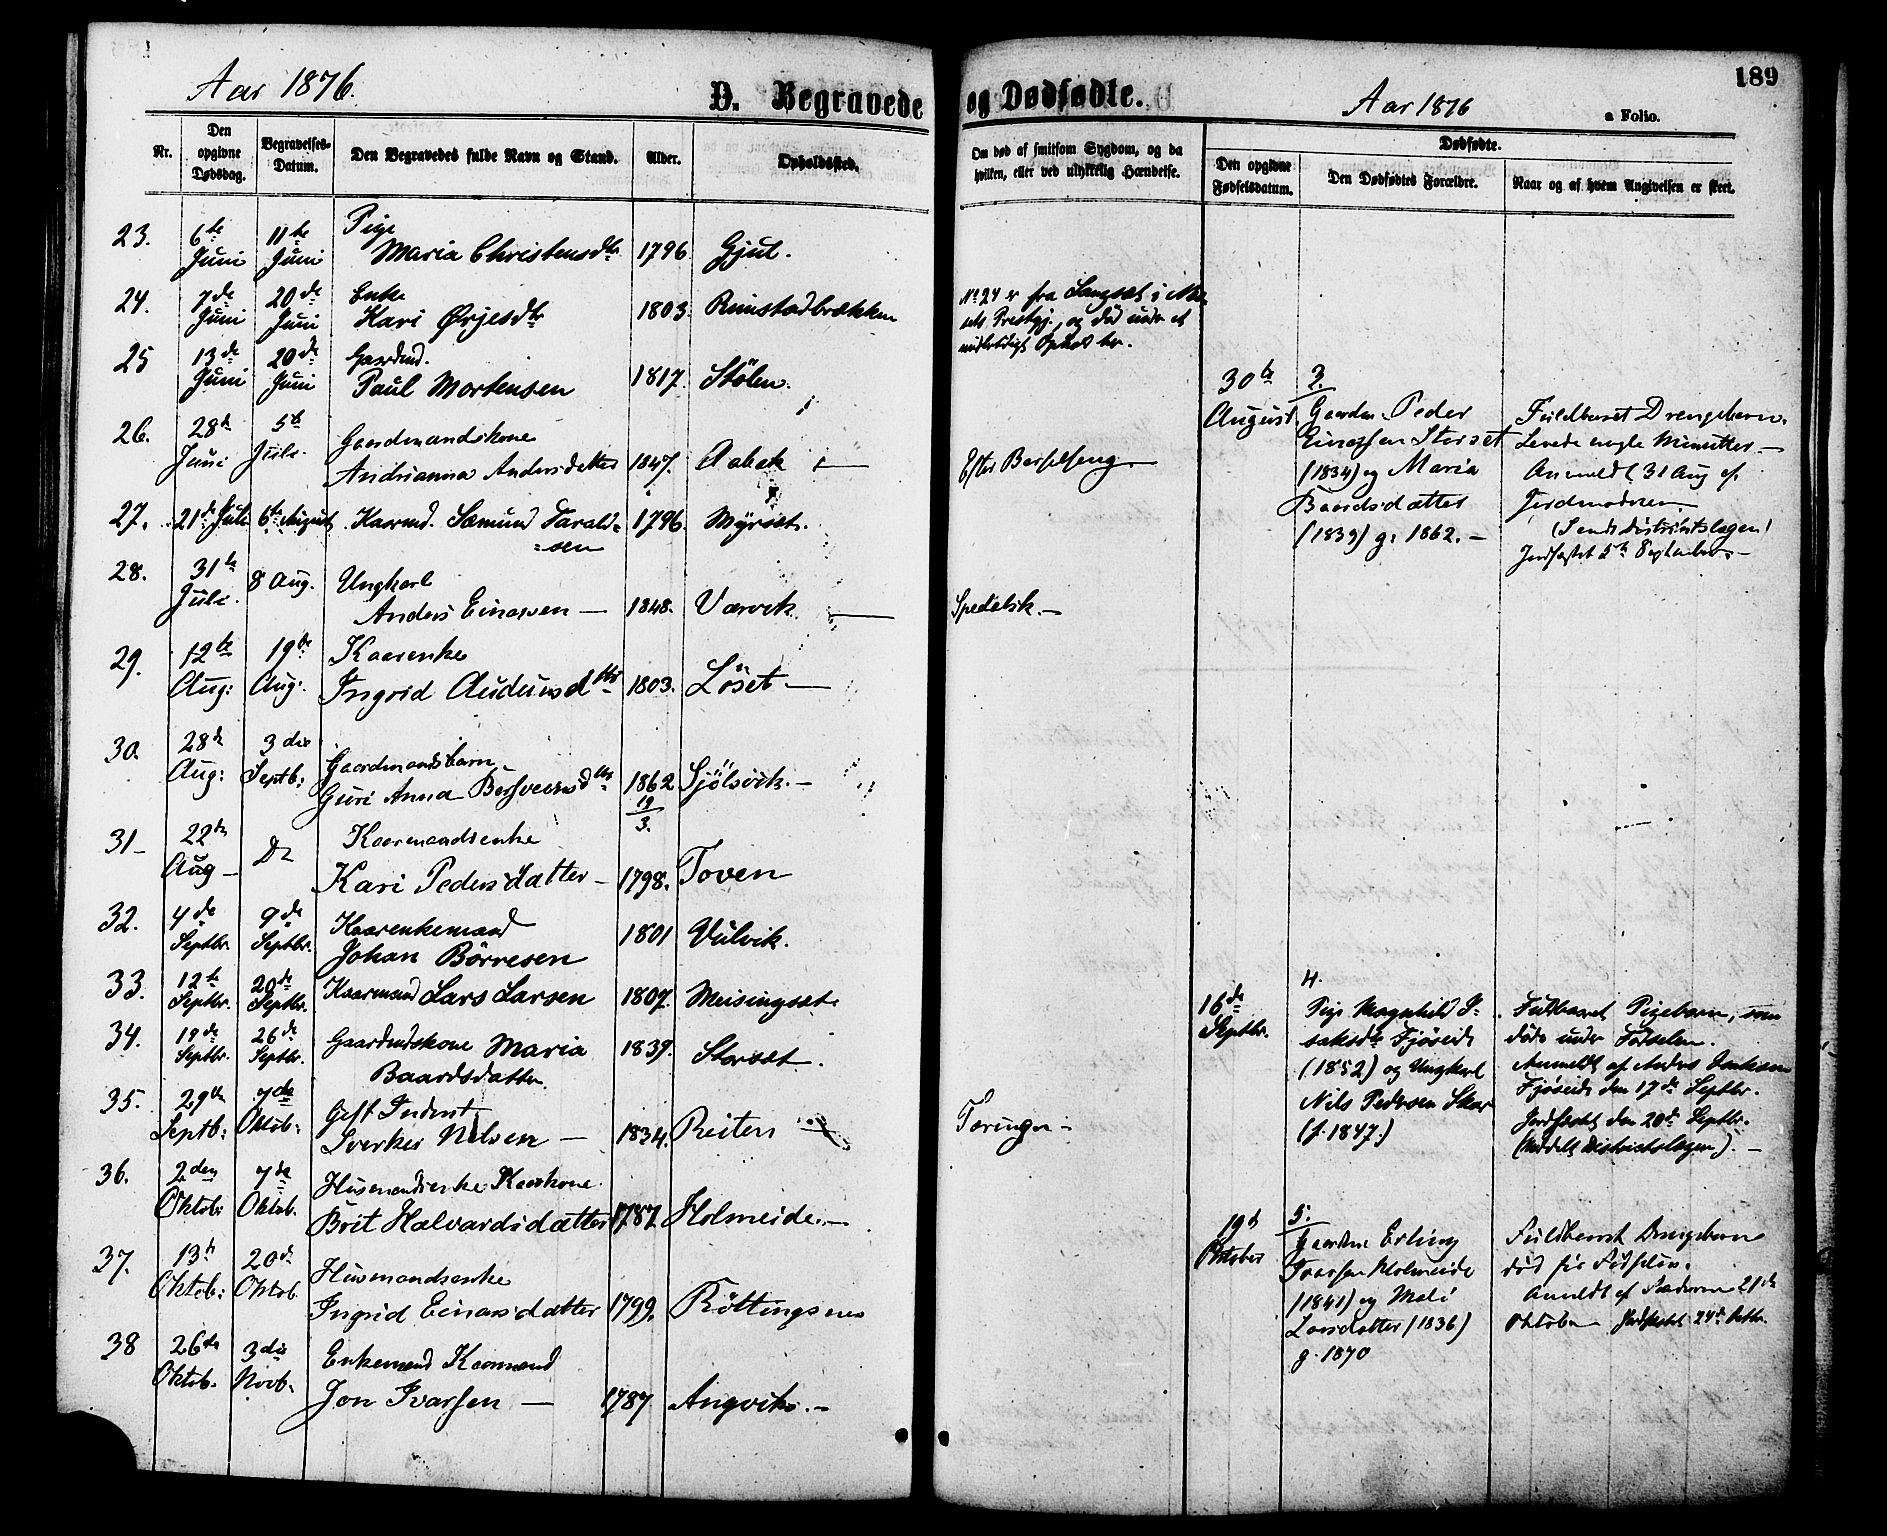 Aar 1876.
D. Begravede
Nr.
Den opgivne Dødsdag.
Begravelses-Datum.
Den Begravedes fulde Navn og Stand.
Alder.
Opholdssted.
23. 6te Juni 11te Juni Pige
Maria Christensdtr 1796 Gjul.
24. 7de Juni 20de Juni Enke
Kari Ørjesdtr 1803. Rimstadbrækken
25 13de Juni 20de Juni Gaardmd.
Paul Mortensen 1817. Stölen.
26. 28de Juni 5te Juli. Gaardmandskone
Andrianna Andersdatter 1847. Aabak
27. 21de Juli 6te August Kaarmd. Sæmund Tarald=
=sen 1796. Myrset.
28. 31te Juli. 8 Aug. Ungkarl
Anders Einarsen — 1848.Værvik
29. 12te Aug: 19de Aug: Kaarenke
Ingrid Audunsdtr 1803. Löset —
30. 28de Aug: 3die Septb: Gaardmandsbarn
Guri Anna Bersveensdtr 1862 19/3. Sjölsvik. —
31 — 22de Aug — Do Kaarmandsenke
Kari Pedersdatter — 1798. Toven
32. 4de Septbr. 9de Septbr. Kaarenkemand
Johan Börresen 1801 Vulvik.
33. 12te Septbr. 20de Septbr. Kaarmand Lars Larsen 1807. Meisingset.
34. 19de Septbr. 26de Septbr. Gaardmdskone Maria
Baardsdatter 1839. Storset.
35. 29de Septb: 7de Oktob: Gift Inderst
Sverker Nilsen — 1834. Reiten
36. 2den Oktob: 7de Oktob. Husmandsenke Kaarkone
Brit Halvardsdatter 1787 Holmeide. —
37. 13de Oktob: 20de Oktob. Husmandsenke
Ingrid Einarsdatter 1799. Röttingsnes
38 26de Oktob. 3die Novb. Enkemand Kaarmand
Jon Ivarsen — 1787 Angvik. —
og Dødfødte.
Aar 1876
a Folio.
189
Om død af smitsom Sygdom, og da
hvilken, eller ved ulykkelig Hændelse.
Dødfødte.
Den opgivne Fødselsdatum.
Den Dødfødtes Forældre.
Naar og af hvem Angivelsen er skeet.
No 24 er fra Langset i
sets Prestgj., og död under et
midlertidigt Ophold her.
Efter Barselseng
Spedalsk. —
Tæringen —
30te August.
3.
Gaardm. Peder
Einarsen Storset
(1834) og Maria
Baardsdatter
(1839) g. 1862. —
Fuldbaaret Drengebarn.
Levede nogle Minutter. —
Anmeldt 31 Aug af
Jordmoderen
(Sendt Distriktslægen)
Jordfæstet 5te September —
16de Septbr.
4.
Pige Magnhild I=
saksdtr Fjöseide
(1852) og Ungkarl
Nils Pedersen Skar
(f. 1847.)
Fuldbaaret Pigebarn, som
döde under Födselen.
Anmeldt af Anders Isaksen
Fjöseide den 17de Septbr.
Jordfæstet den 20de Septbr.
(Meddelt Distriktslægen). —
19de Oktober
5.
Gaardm Erling
Ivarsen Holmeide
(1841) og Mali
Larsdatter (1836)
g. 1870
Fuldbaaret Drengebarn
död før Födselen.
Anmeldt af Faderen 21de
Oktober Jordfæstet 24de Oktbr.